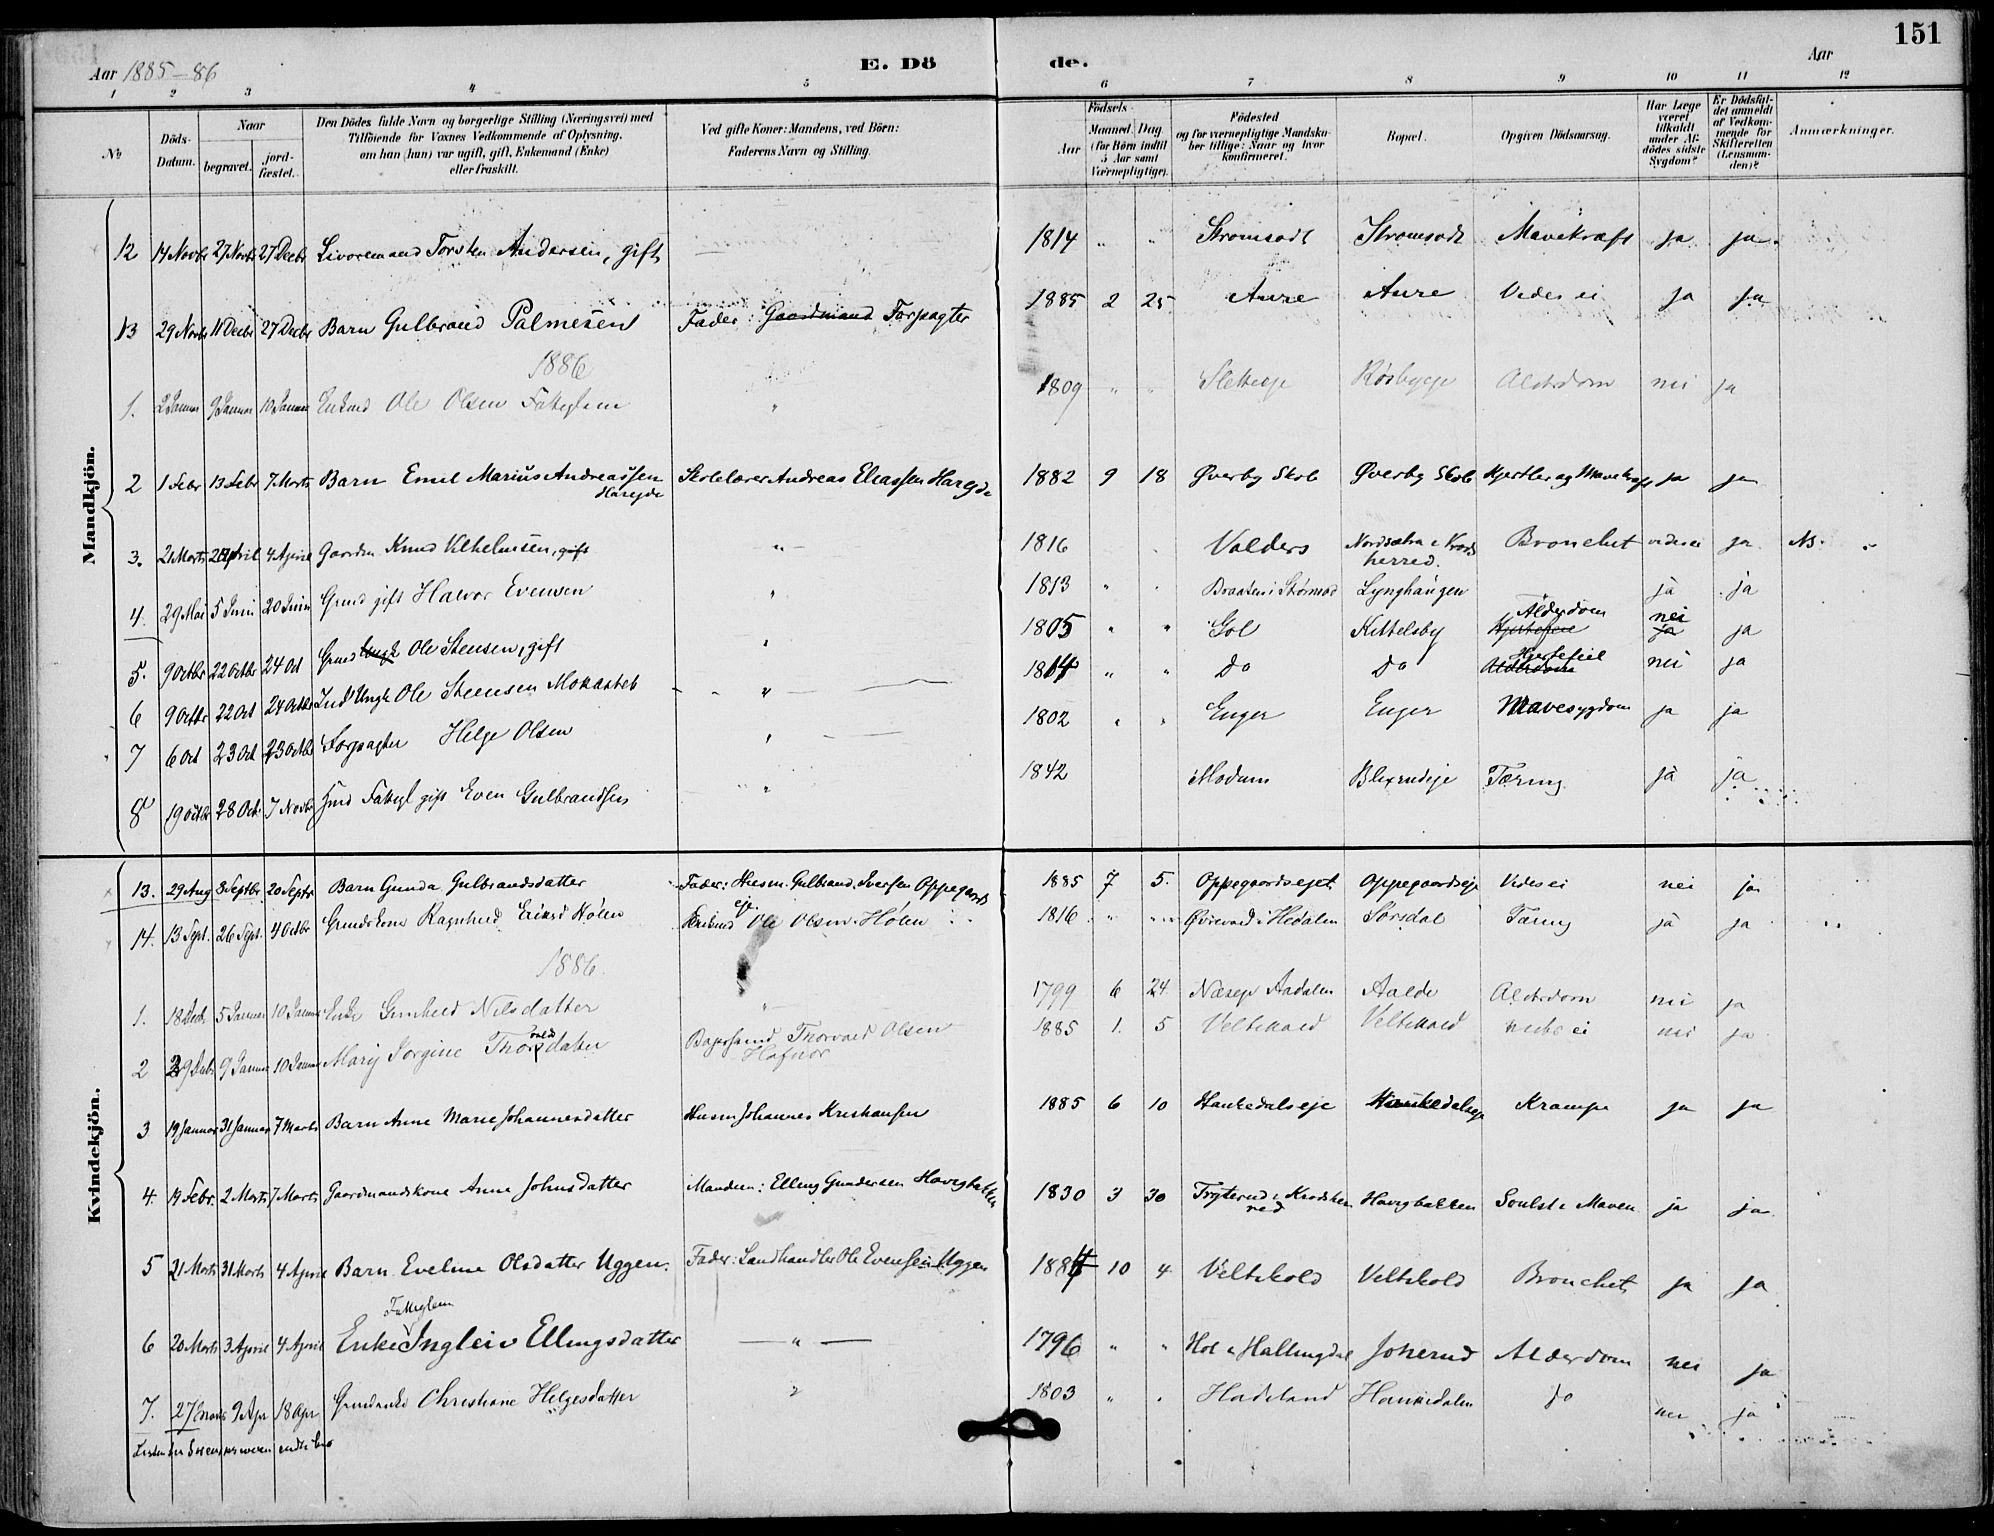 151
Aar 1885-86
E. Dö
de.
Aar
1 2 3 4 5 6 7 8 9 10 11 12
No
Döds-Datum.
Naar
begravet.
jord-fæstet.
Den Dödes fulde Navn og borgerlige Stilling (Næringsvei) med
Tilföiende for Voxnes Vedkommende af Oplysning,
om han (hun) var ugift, gift, Enkemand (Enke)
eller fraskilt.
Ved gifte Koner: Mandens, ved Börn:
Faderens Navn og Stilling.
Födsels-
Aar
Maaned. Dag
(for Börn indtil
5 Aar samt
Værnepligtige).
Födested
og for værnepligtige Mandska-
ber tillige: Naar og hvor
konfirmeret.
Bopæl.
Opgiven Dödsaarsag.
Har Læge
været
tilkaldt
under Af-
dödes sidste
Sygdom?
Er Dödsfal-
det anmeldt
af Vedkom-
mende for
Skifteretten
(Lensman-
den)?
Anmærkninger.
Mandkjön.
12 14 Novbr 27 Novbr 27 Decbr Livøremand Torsten Andersen, gift 1814 " " Strømsodt Strømsodt Mavekræft ja ja
13 29 Novbr 11 Decbr 27 Decbr Barn Gulbrand Palmesen Fader: Gaardmand Forpagter 1885 2 25 Aure Aure Vides ei ja ja
1886
1. 2 Januar 9 Januar 10 Januar Enkmd Ole Olsen Fattiglem " 1809 " " Sletteeje Røsbyeje Alderdom nei ja
2 1 Febr 13 Febr 7 Marts Barn Emil Marius Andreassen Skolelærer Andreas Eliassen 1882 9 18 Øverby Skole Øverby Skole Hjertler og Mavekræft ja ja
3. 21 Marts April 4 April Gaardm Knud Vilhelmsen, gift " 1816 Valders Nordsætra i Krøds
herred. Bronchit vides ei ja NB.
4. 29 Mai 5 Juni 20 Juni Grmd gift Halvor Evensen " 1813 " Lynghaugen ja ja
5. 9 Octbr 22 Octbr 24 Oct Grmd Ungk Ole Steensen, gift " 1805 " " Gol Kittelsby Hjertefeil Alderdom ja nei ja
6 9 Octbr 22 Oct 24 Octbr Ind Ungk Ole Steensen " 1814 " " Do Do Alderdom Hjertefeil nei ja
7 6 Oct 23 Oct 23 Octbr Forpagter Helge Olsen " 1802 " " Enger Enger Mavesygdom ja ja
8 19 Octbr 28 Oct. 7 Novbr gift Even Gulbrandsen " 1842 Modum Blixrudeje Tæring ja ja
Kvindekjön.
13. 29 Aug 8 Septbr 20 Septr Barn Gunda Gulbrandsdatter Fader: Husm. Gulbrand Iversen Oppegaards
eje 1885 7 5. Oppegaardsejet Oppegaardseje Vides ei nei ja
14. 13 Sept. 26 Sept. 4 Octbr Ragnhild Eriksd Hølen Ole Olsen Hølen 1816 " " i Hedalen Sørsdal Tæring ja ja
1886.
1. 18 Decbr 5 Januar 10 Januar Enke Gunhild Nilsdatter " 1799 6 24 Næseje Aadalen Aalde Alderdom nei ja
2 29 Decbr 9 Januar 10 Januar Marij Jorgine Thorvaldsdatter Thorvald Olsen
Hafnor 1885 1. 5 Veltekold Veltekold vides ei nei ja
3 19 Januar 31 Januar 7 Marts Barn Anne Marie Johannesdatter Husm Johannes Kristiansen 1885 6 10 Haukedalseje Haukedalseje Krampe ja ja
4. 19 Febr. 2 Marts 7 Marts Gaardmandskone Anne Johnsdatter Manden: Elling Gundersen 1830 3 30 Trytterud i Krødsher
red Hovigbakken Svulst i Maven ja ja
5 21 Marts 31 Marts 4 April Barn Eveline Olsdatter Uggen. Fader: Landhandler Ole Evensen Uggen 1884 10 4 Veltekold Veltekold Bronchit ja ja
Fattiglem
6 20 Marts 3 April 4 April Enke Ingleiv Ellingsdatter " 1796 " " Hol i Hallingdal Jokerud Alderdom nei ja
7. 27 Marts 9 Apr 18 Apr Christiane Helgesdatter " 1803 " " Hadeland Haukedalen do nei ja